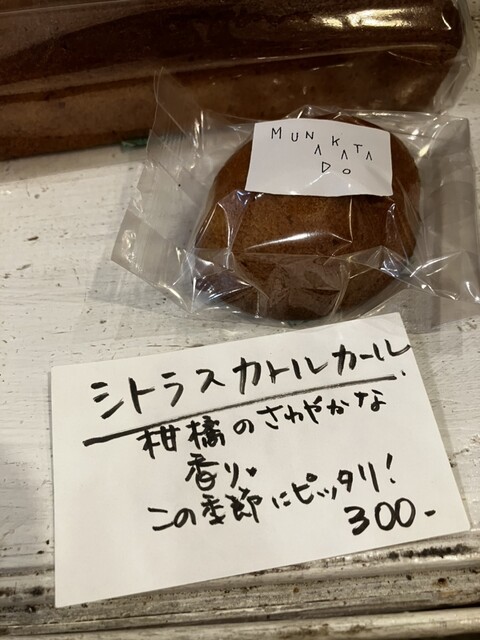 MUNAKATA
DO
シトラスカトルカール
柑橘のさわやかな
香り♥
この季節にピッタリ!
300-